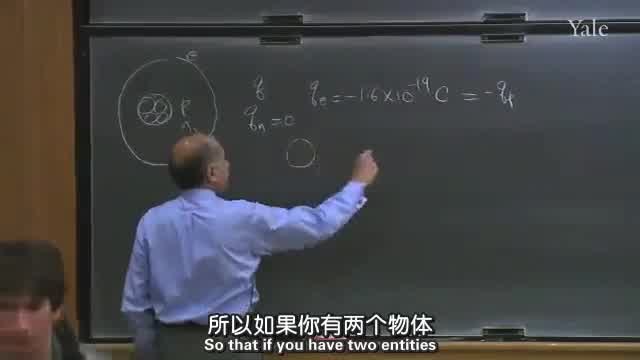 Yale
e
q q_e = -1.6 × 10^{-19} C = -q_p
P
n
q_n = 0
所以如果你有两个物体
So that if you have two entities